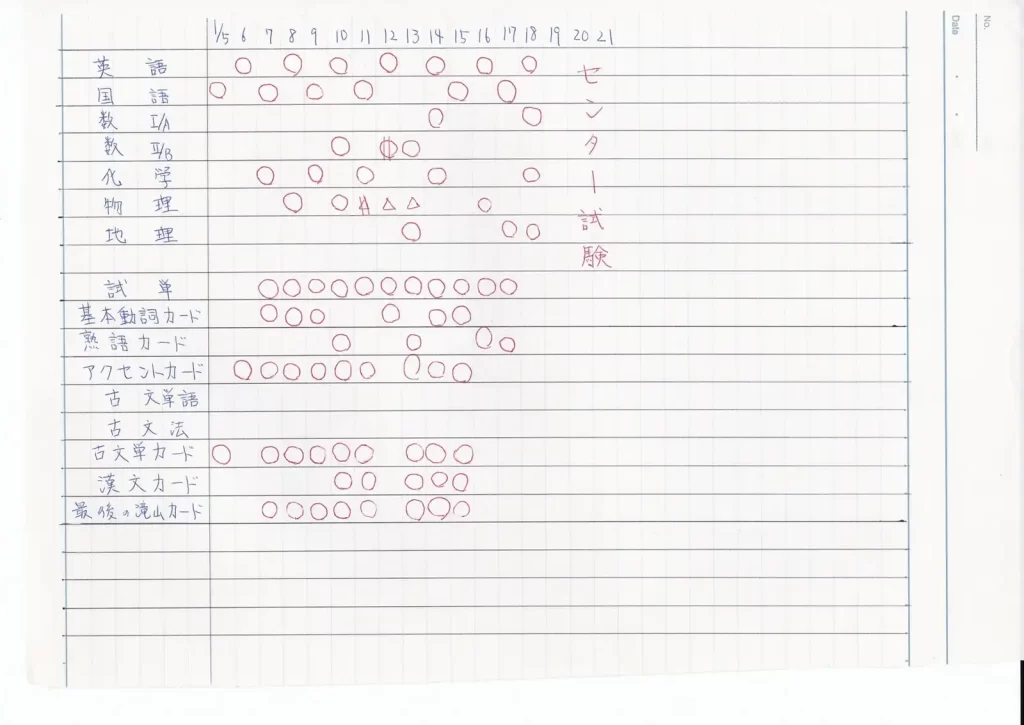 No.
Date
1/5 6 7 8 9 10 11 12 13 14 15 16 17 18 19 20 21
英語 ○ ○ ○ ○ ○ ○ ○
国語 ○ ○ ○ ○ ○ ○
数 I/A ○ ○
数 II/B ○ ○ ○
化学 ○ ○ ○ ○ ○
物理 ○ ○ △ △ ○
地理 ○ ○ ○
センター試験
試単 ○ ○ ○ ○ ○ ○ ○ ○ ○ ○ ○
基本動詞カード ○ ○ ○ ○ ○ ○
熟語カード ○ ○ ○ ○
アクセントカード ○ ○ ○ ○ ○ ○ ○ ○ ○
古文単語
古文法
古文単カード ○ ○ ○ ○ ○ ○ ○ ○ ○
漢文カード ○ ○ ○ ○ ○
最後の滝山カード ○ ○ ○ ○ ○ ○ ○ ○